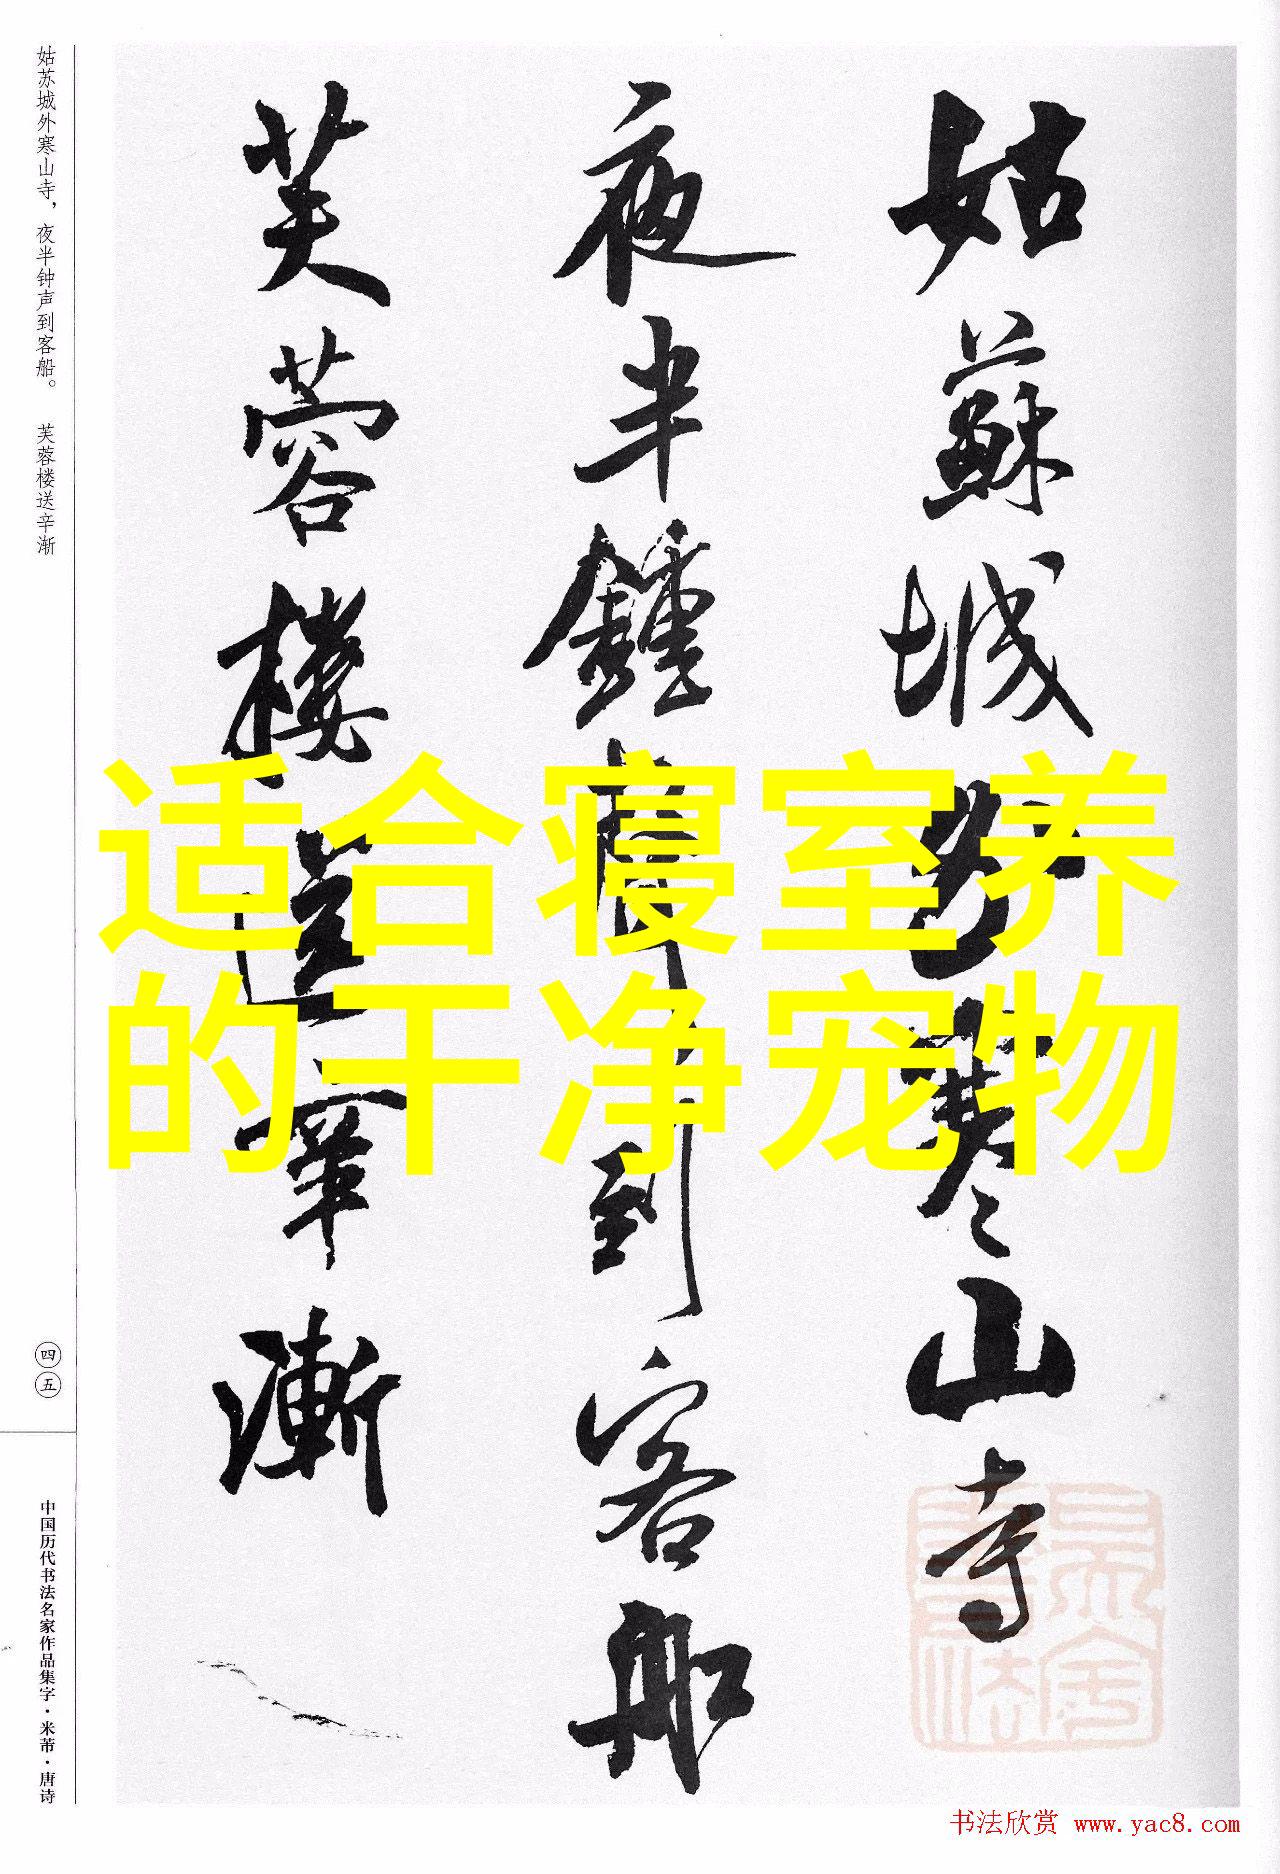 姑苏城外寒山寺，夜半钟声到客船。 芙蓉楼送辛渐
姑蘇城外寒山寺
夜半鐘聲到客船
芙蓉樓送辛漸
适合寝室养
的干净宠物
四五
中国历代书法名家作品集字·米芾·唐诗
书法欣赏 www.yac8.com